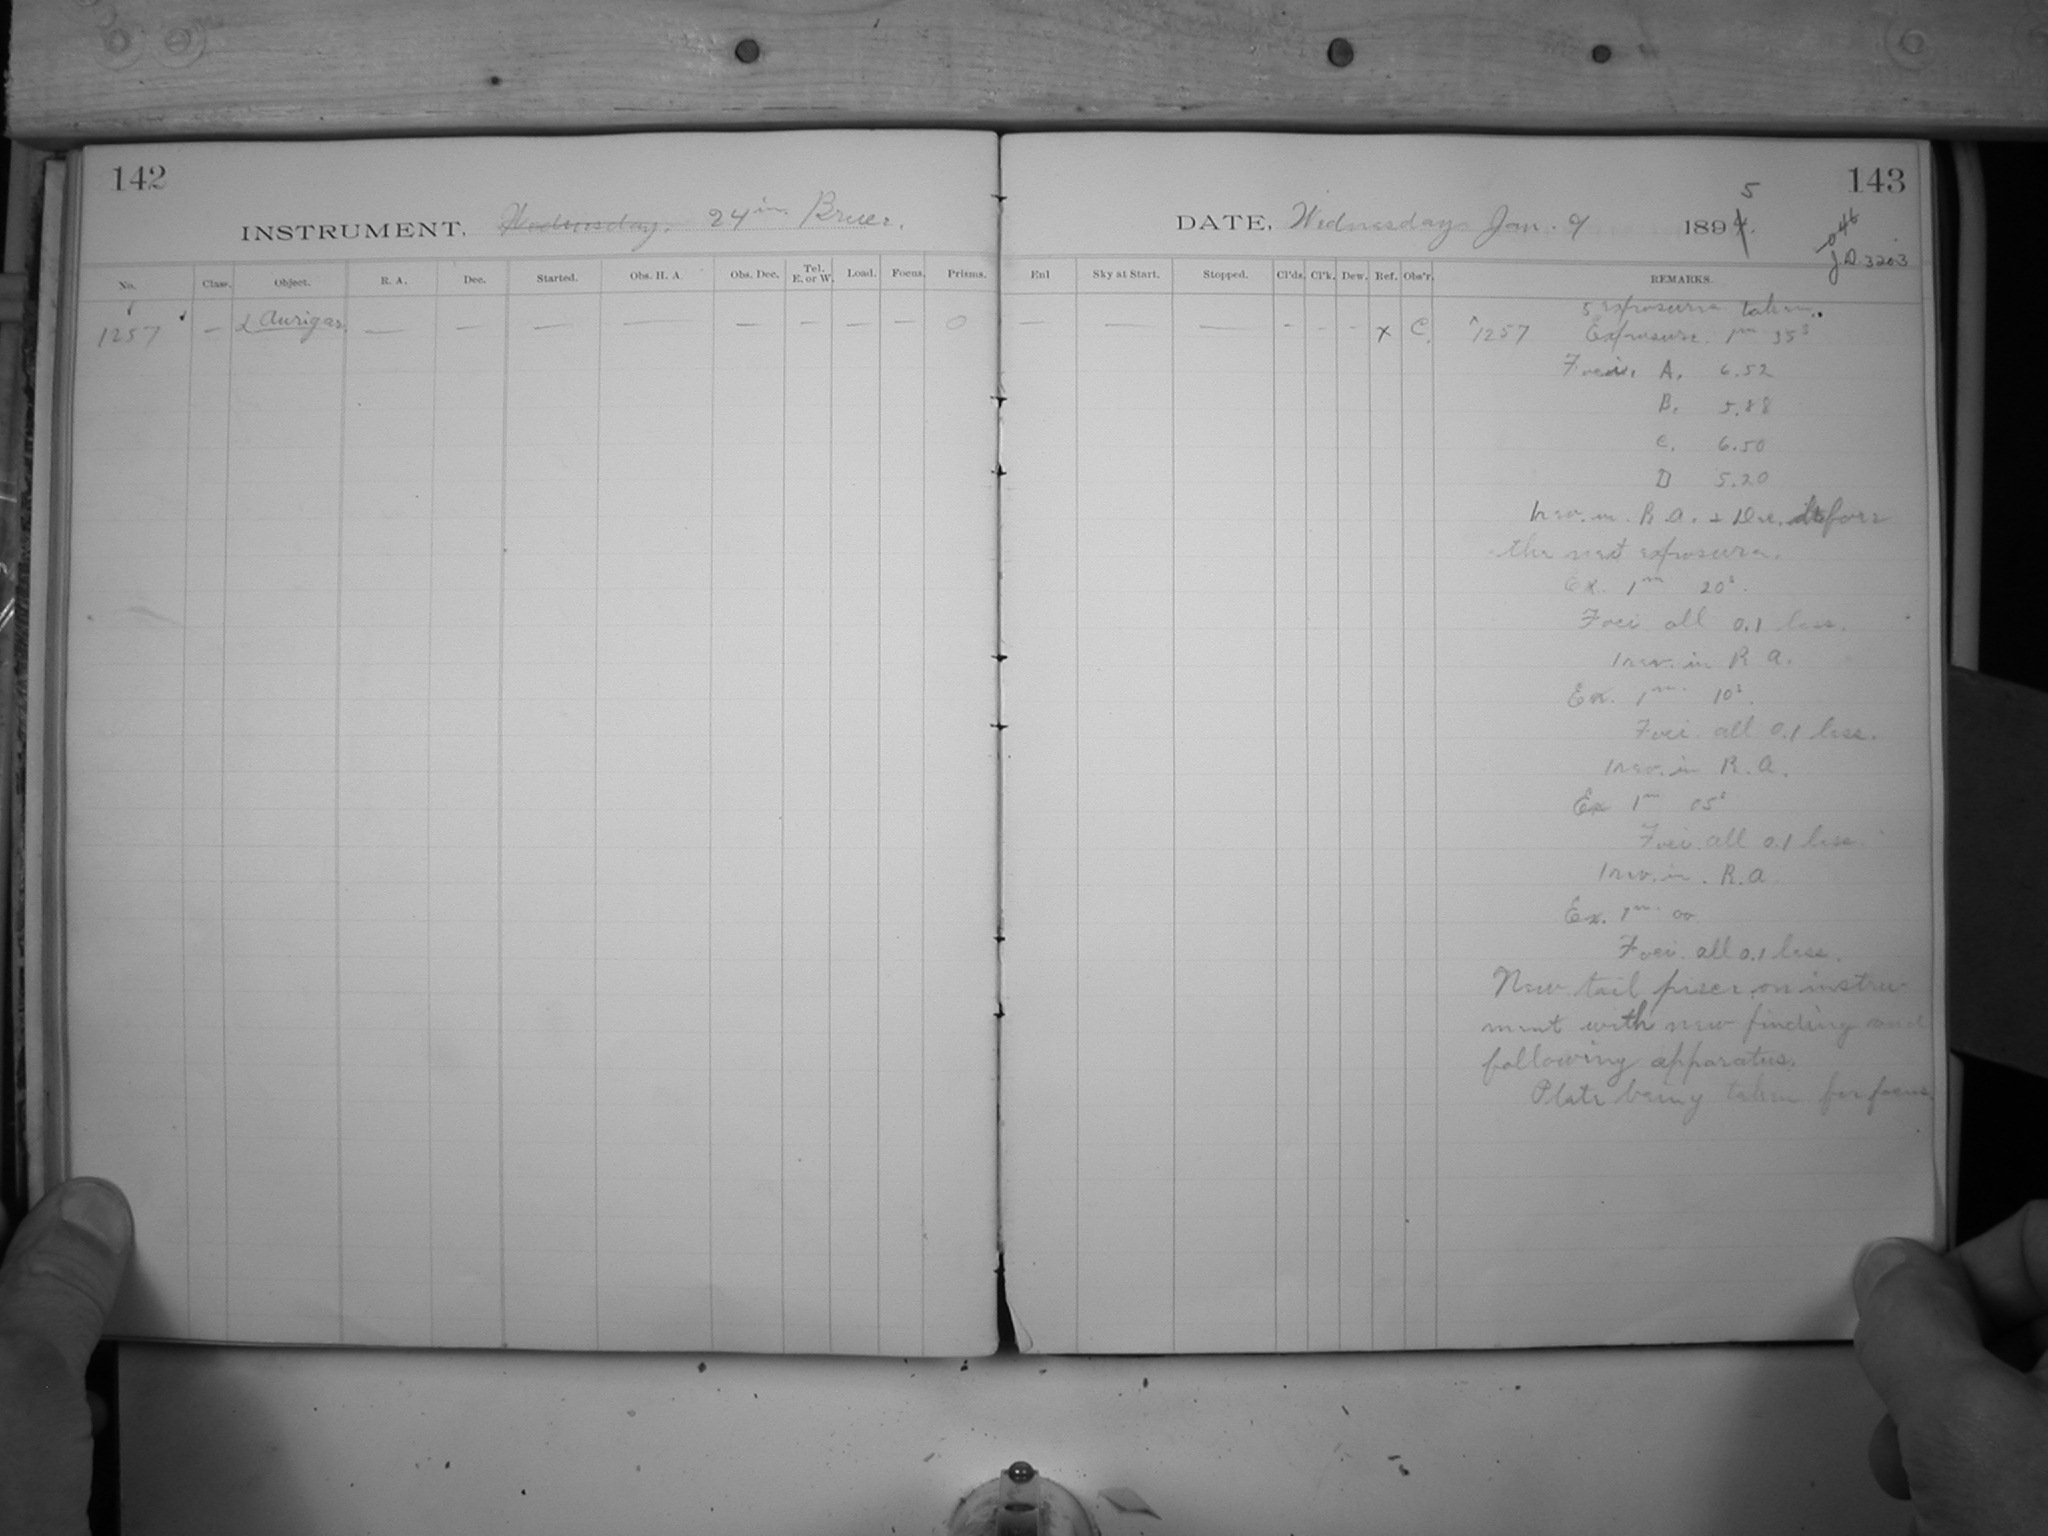 142
INSTRUMENT, Wednesday. 24 in. Bruce.
No. Class. Object. R. A. Dec. Started. Obs. H. A. Obs. Dec. Tel. E. or W. Load. Focus. Prisms.
1257 — α Aurigae — — — — — — — — O
143
DATE, Wednesday Jan. 9 1894. 5
-046
J.D. 3203
Enl Sky at Start. Stopped. Cl'ds. Cl'k. Dew. Ref. Obs'r. REMARKS.
5 exposures taken.
— — — - - - x C. 1257 Exposure. 1m 35s
Foci. A. 6.52
B. 5.88
C. 6.50
D 5.20
Inv. in R.A. + Dec. before
the next exposure.
Ex. 1m 20s.
Foci all 0.1 less.
Inv. in R A.
Ex. 1m 10s.
Foci. all 0.1 less.
Inv. in R.A.
Ex 1m 05s
Foci. all 0.1 less
Inv. in. R.A
Ex. 1m. 00
Foci. all 0.1 less.
New tail piece on instru-
ment with new finding and
following apparatus.
Plate being taken for focus.